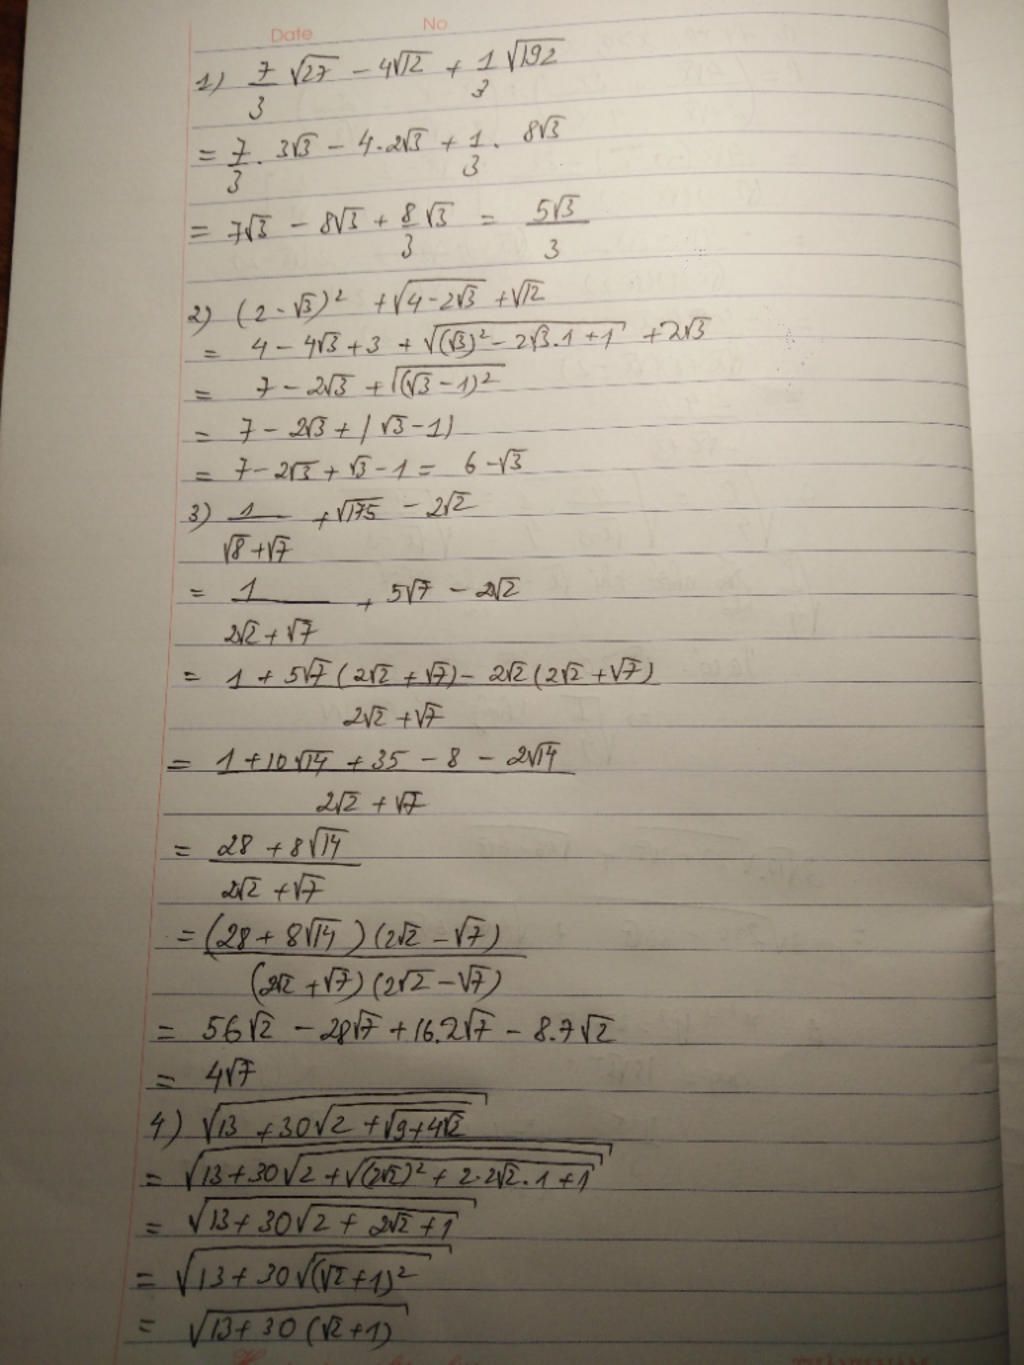 Date No
1) 7/3 √27 − 4√12 + 1/3 √192
= 7/3 . 3√3 − 4.2√3 + 1/3 . 8√3
= 7√3 − 8√3 + 8/3 √3 = 5√3/3
2) (2 − √3)² + √(4 − 2√3) + √12
= 4 − 4√3 + 3 + √((√3)² − 2√3.1 + 1) + 2√3
= 7 − 2√3 + √((√3 − 1)²)
= 7 − 2√3 + |√3 − 1|
= 7 − 2√3 + √3 − 1 = 6 − √3
3) 1/(√8 + √7) + √175 − 2√2
= 1/(2√2 + √7) + 5√7 − 2√2
= (1 + 5√7(2√2 + √7) − 2√2(2√2 + √7))/(2√2 + √7)
= (1 + 10√14 + 35 − 8 − 2√14)/(2√2 + √7)
= (28 + 8√14)/(2√2 + √7)
= (28 + 8√14)(2√2 − √7)/((2√2 + √7)(2√2 − √7))
= 56√2 − 28√7 + 16.2√7 − 8.7√2
= 4√7
4) √(13 + 30√(2 + √(9 + 4√2)))
= √(13 + 30√(2 + √((2√2)² + 2.2√2.1 + 1)))
= √(13 + 30√(2 + 2√2 + 1))
= √(13 + 30√((√2 + 1)²))
= √(13 + 30(√2 + 1))